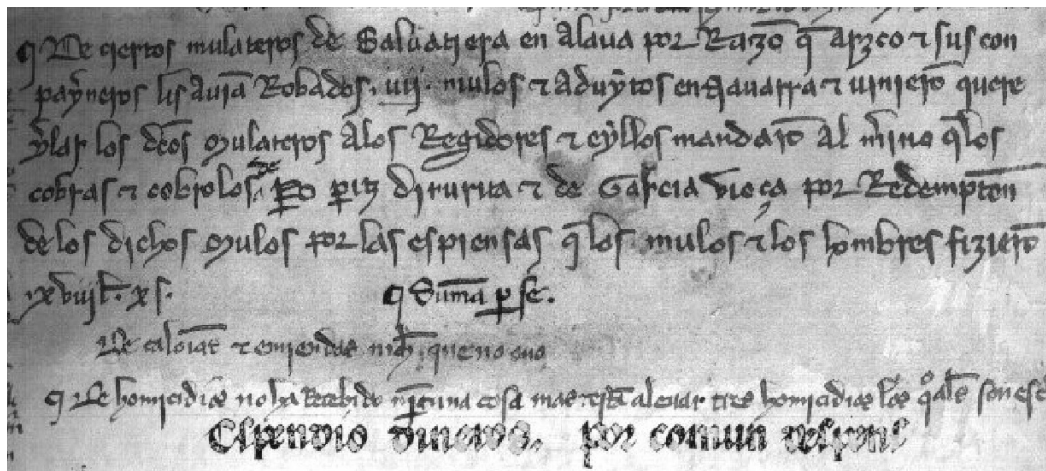 ¶ De ciertos mulateros de Saluatierra en Alaua por Razo q̄ arzco τ sus con
payneros lis auiā Robados .vij. mulos τ aduytos en nauarra τ vinierō quere
ylar los dc̄os mulateros alos Regidores τ eyllos mandarō al m̄ino q̄ los
cobras τ cobrolos de Po periz diturua τ de Garcia por Redemptōn
de los dichos mulos por las espiensas q̄ los mulos τ los hombres fizierō
xs. ¶ Suma per se.
De caloias τ emiendas que no ouo
¶ De homicidios no ha Recebido ninguna cosa mas alevar tres homicidios los q̄les son estos
Espendio dineros. por comun